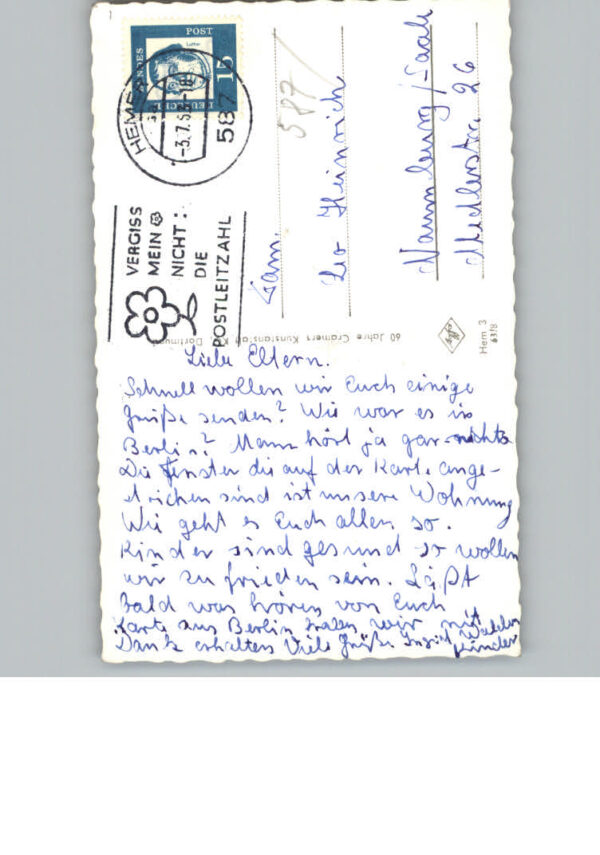 DEUTSCHE BUNDESPOST
15
Luther
HEMER
587
-3.7.6
VERGISS
MEIN
NICHT:
DIE
POSTLEITZAHL
587
Fam.
Leo Heinrich
Naumburg/Saale
26
60 Jahre Cramers Kunstanstalt KG Dortmund
Agfa
Hem. 3
Liebe Eltern.
Schnell wollen wir Euch einige
Grüße senden? Wie war es in
Berlin? Mann hört ja gar nichts
Die Fenster die auf der Karte ange-
strichen sind ist unsere Wohnung
Wie geht es Euch allen so.
Kinder sind gesund so wollen
wir zu frieden sein. Laßt
bald was hören von Euch
Karte aus Berlin haben wir mit
Dank erhalten Viele Grüße Ingrid Walter
Kinder